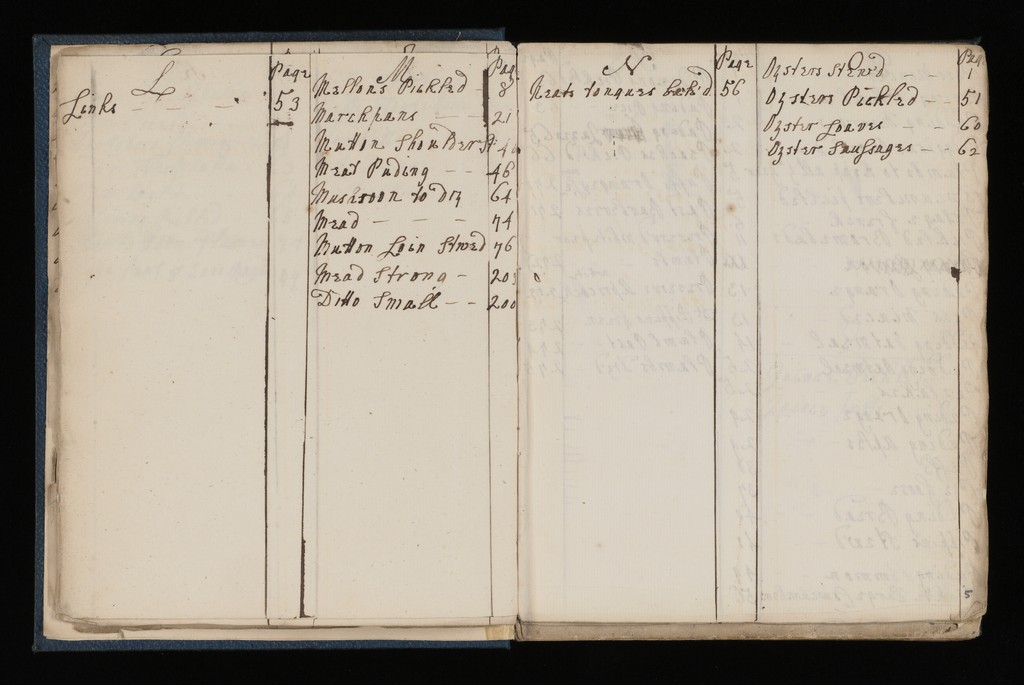 L
Page
Links - - - 53
M
Page
Mellons Pickled - 8
Marchpans - - 21
Mutton Shoulder St: 40
Meat Puding - - 46
Mushroon to Dry 64
Mead - - - 74
Mutton Loin Stwed 76
Mead Strong - 203
Ditto Small - - 200
N
Page
Neats tongues bak'd 56
Page
Oysters Stew'd - - 1
Oysters Pickled - - 51
Oyster Loaves - - 60
Oyster Saussages - - 62
5